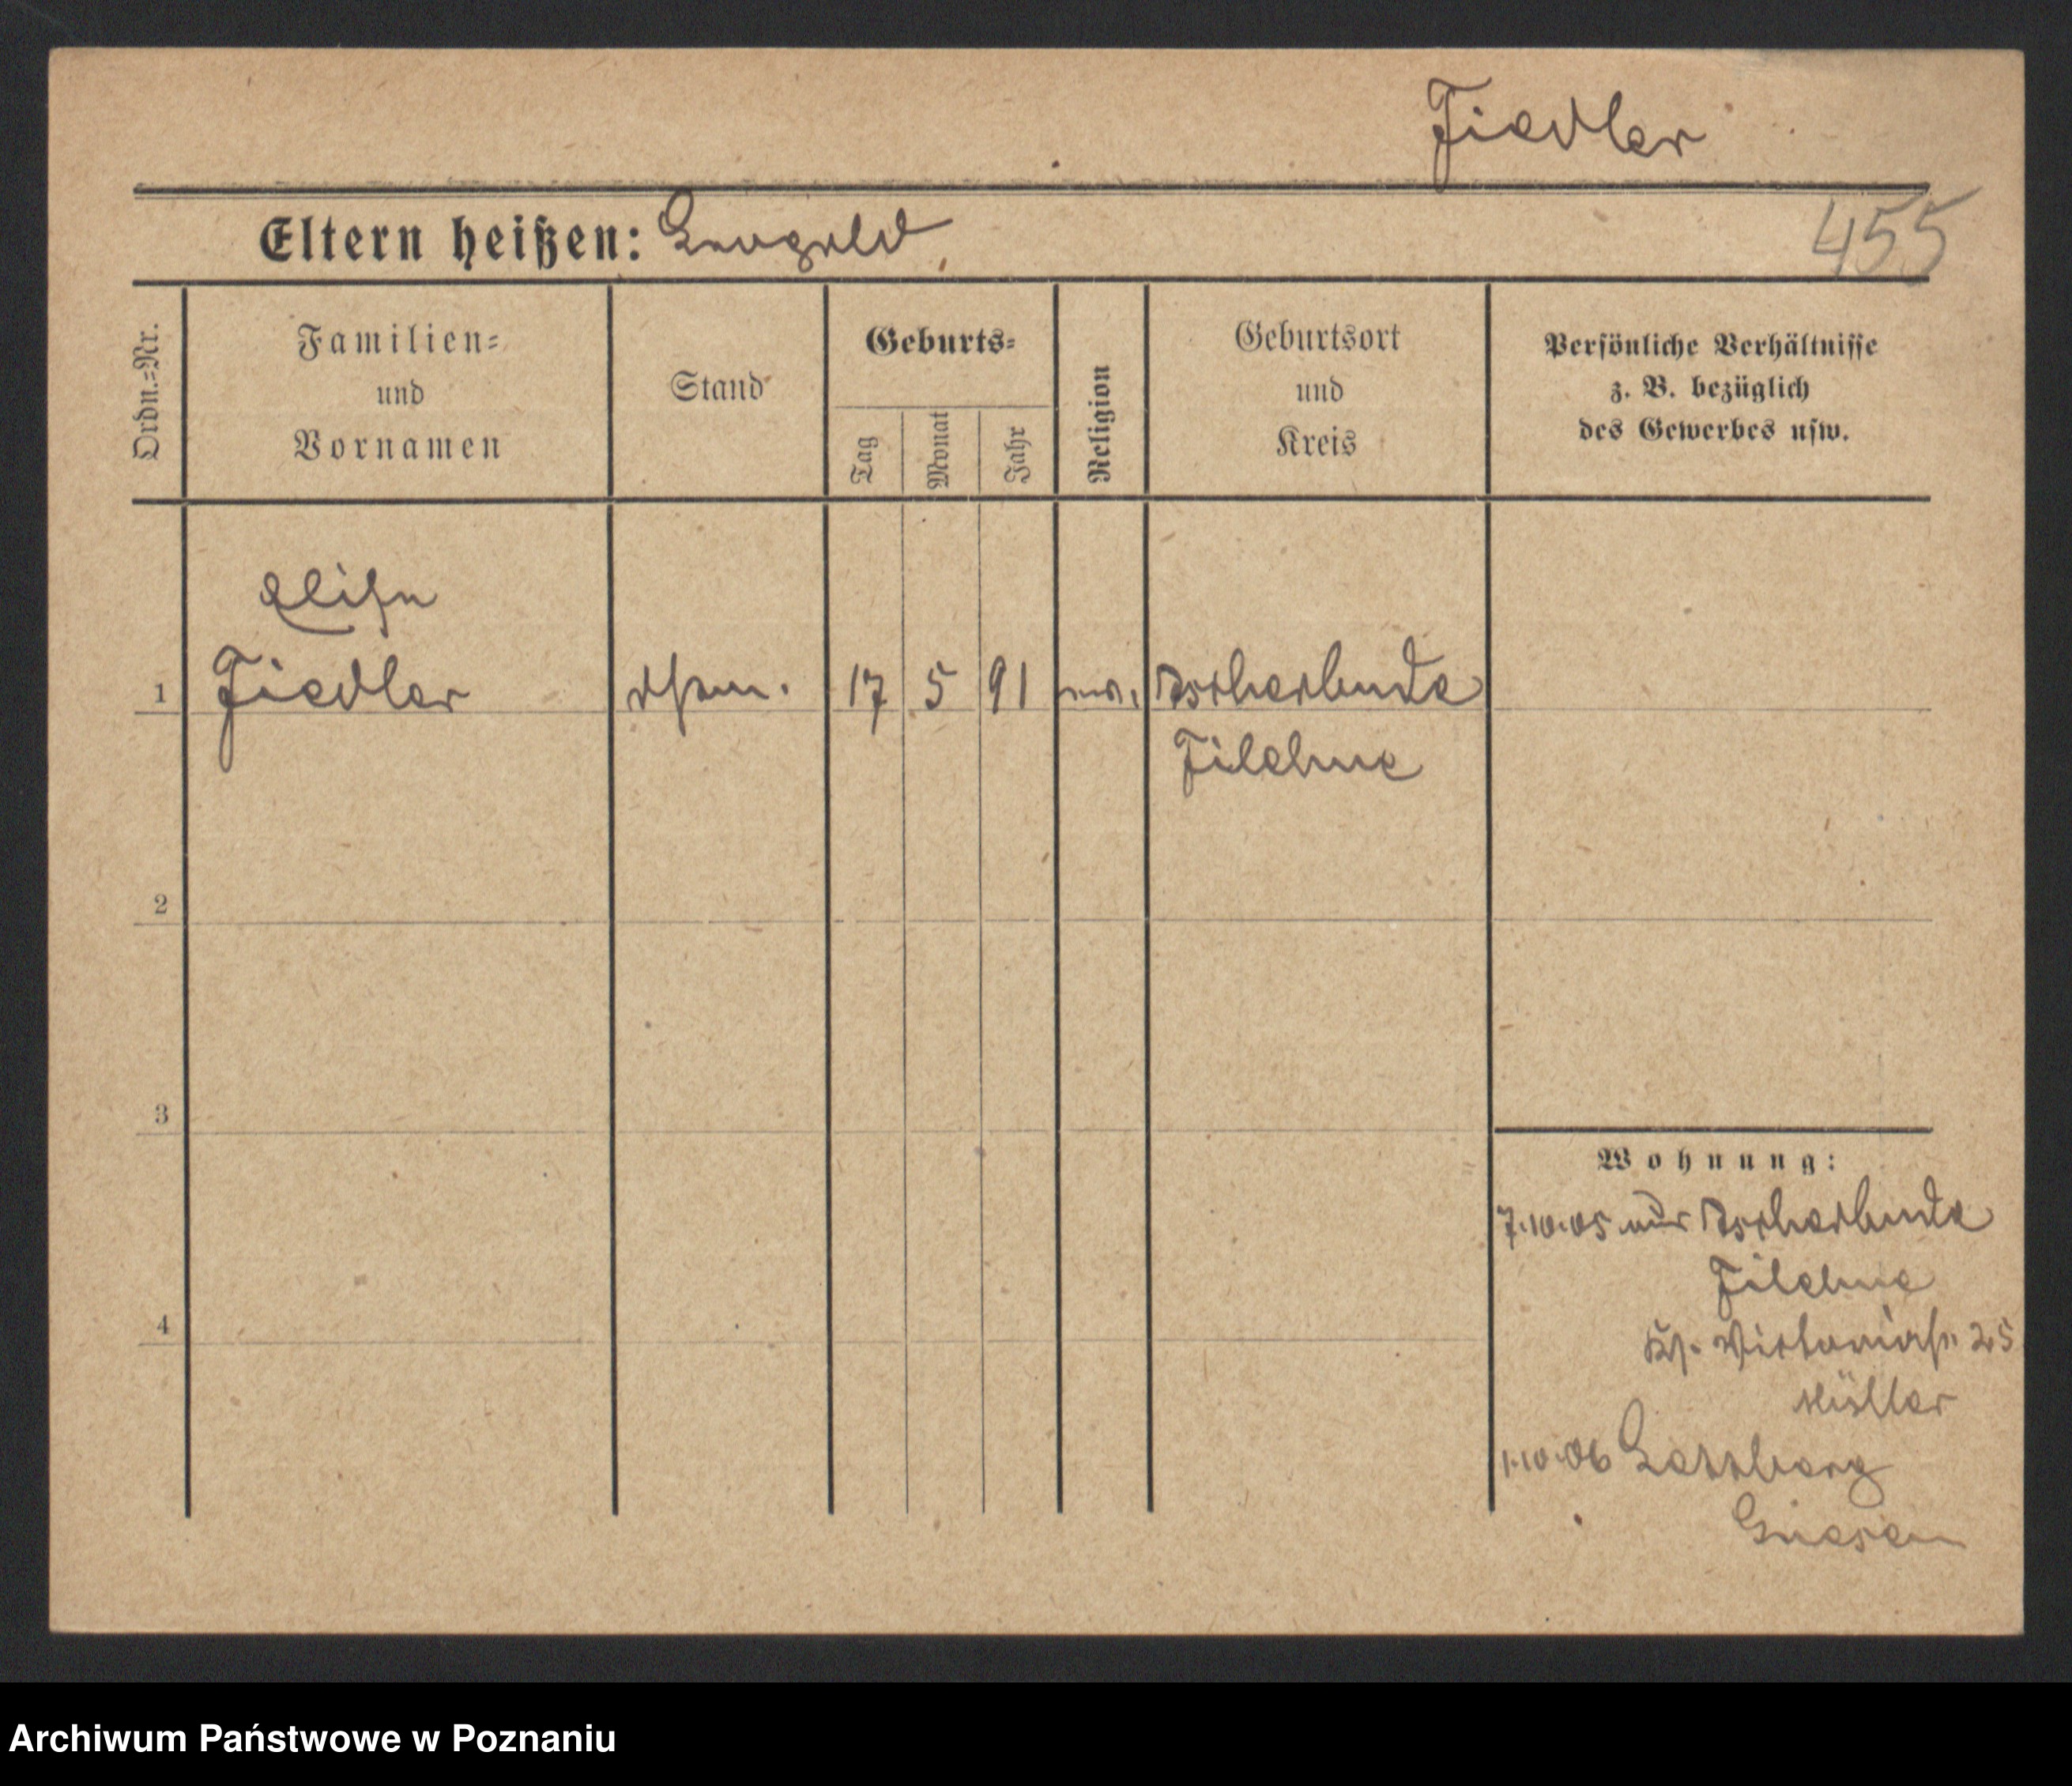 Fiedler
Eltern heißen: Leopold
455
Ordn.=Nr.
Familien=
und
Vornamen
Stand
Geburts=
Tag
Monat
Jahr
Religion
Geburtsort
und
Kreis
Persönliche Verhältnisse
z. B. bezüglich
des Gewerbes usw.
Elise
1 Fiedler 17 5 91
Filehne
2
3
4
Wohnung:
7.10.05 aus
Filehne
25
Müller
1.10.06
Gnesen
Archiwum Państwowe w Poznaniu